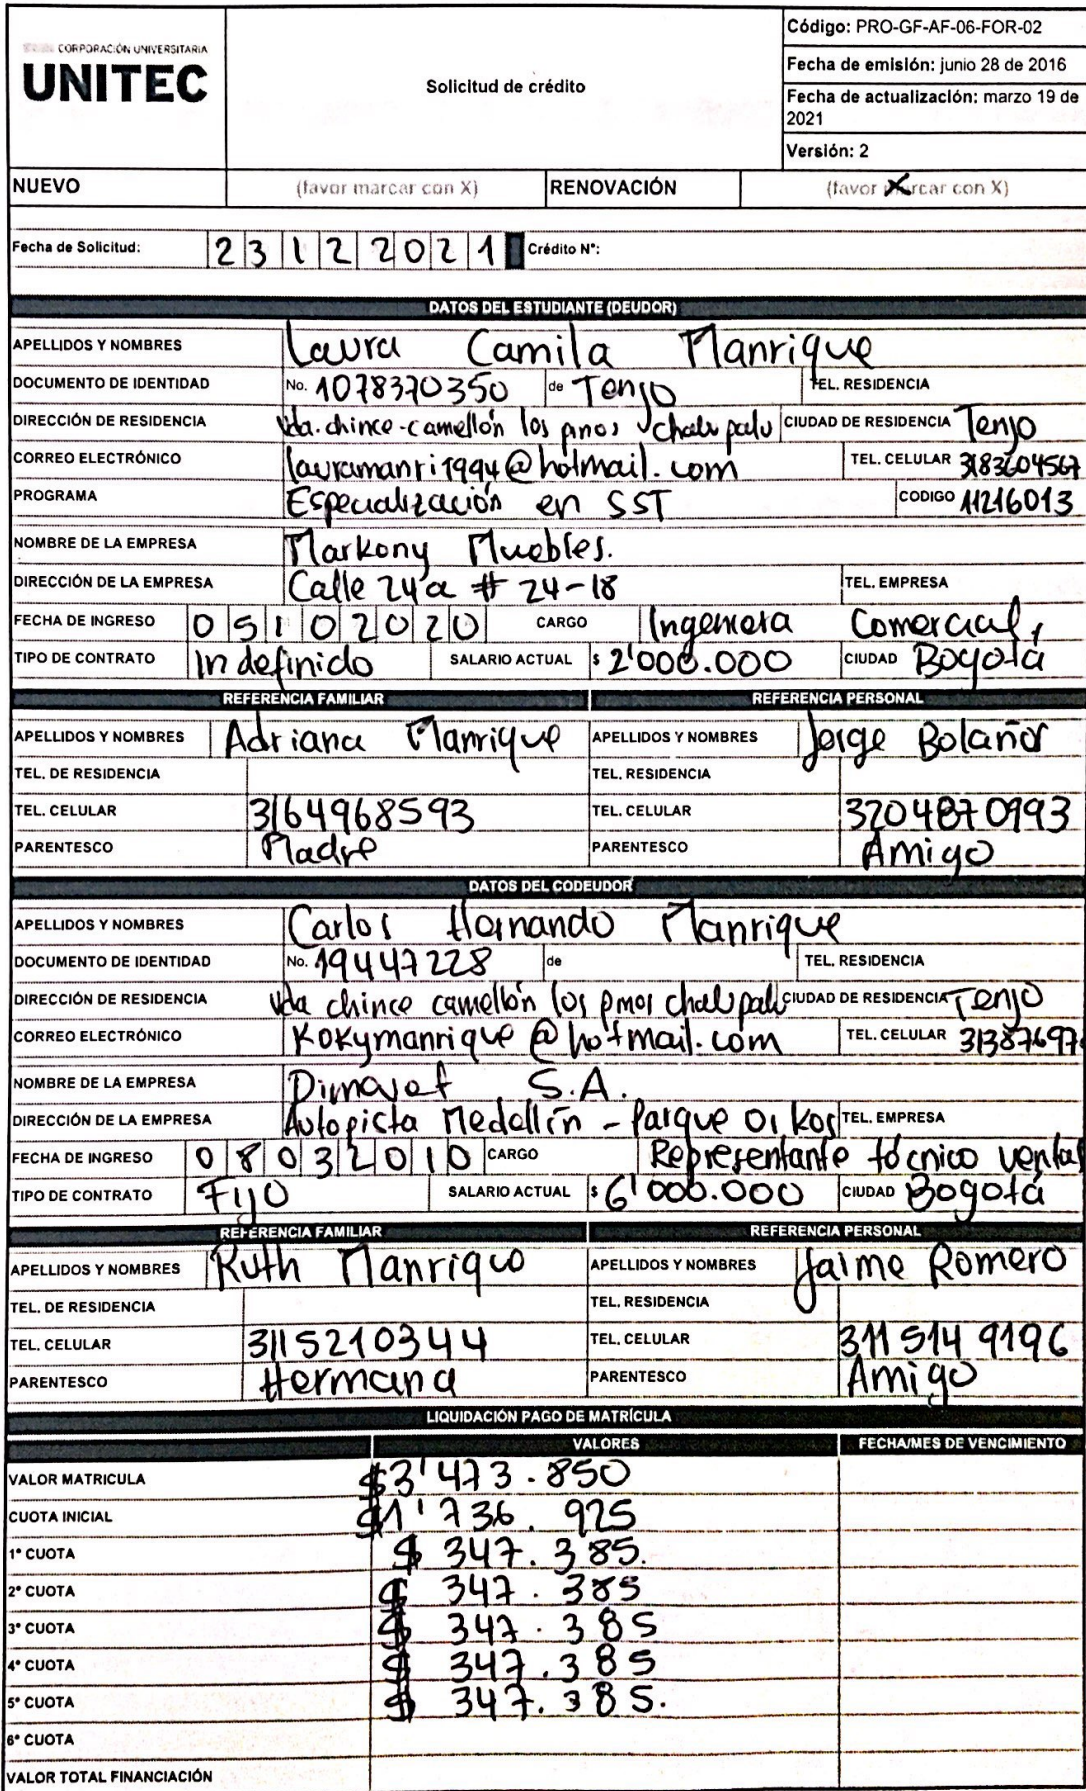 CORPORACIÓN UNIVERSITARIA
UNITEC
Solicitud de crédito
Código: PRO-GF-AF-06-FOR-02
Fecha de emisión: junio 28 de 2016
Fecha de actualización: marzo 19 de 2021
Versión: 2
NUEVO (favor marcar con X) RENOVACIÓN (favor marcar con X) X
Fecha de Solicitud: 23 12 2021 Crédito N°:
DATOS DEL ESTUDIANTE (DEUDOR)
APELLIDOS Y NOMBRES Laura Camila Manrique
DOCUMENTO DE IDENTIDAD No. 1078370350 de Tenjo TEL. RESIDENCIA
DIRECCIÓN DE RESIDENCIA Vda. chince-camellón los pinos chalu palu CIUDAD DE RESIDENCIA Tenjo
CORREO ELECTRÓNICO lauramanri1994@hotmail.com TEL. CELULAR 3183604567
PROGRAMA Especialización en SST CODIGO 11216013
NOMBRE DE LA EMPRESA Markony Muebles.
DIRECCIÓN DE LA EMPRESA Calle 24a # 24-18 TEL. EMPRESA
FECHA DE INGRESO 05102020 CARGO Ingeniera Comercial
TIPO DE CONTRATO Indefinido SALARIO ACTUAL $ 2'000.000 CIUDAD Bogotá
REFERENCIA FAMILIAR REFERENCIA PERSONAL
APELLIDOS Y NOMBRES Adriana Manrique APELLIDOS Y NOMBRES Jorge Bolaños
TEL. DE RESIDENCIA TEL. RESIDENCIA
TEL. CELULAR 3164968593 TEL. CELULAR 3204870993
PARENTESCO Madre PARENTESCO Amigo
DATOS DEL CODEUDOR
APELLIDOS Y NOMBRES Carlos Hernando Manrique
DOCUMENTO DE IDENTIDAD No. 19447228 de TEL. RESIDENCIA
DIRECCIÓN DE RESIDENCIA Vda chince camellón los pinos chalu palu CIUDAD DE RESIDENCIA Tenjo
CORREO ELECTRÓNICO Kokymanrique@hotmail.com TEL. CELULAR 31387697
NOMBRE DE LA EMPRESA S.A.
DIRECCIÓN DE LA EMPRESA Autopista Medellín - Parque Oikos TEL. EMPRESA
FECHA DE INGRESO 08032010 CARGO Representante técnico ventas
TIPO DE CONTRATO Fijo SALARIO ACTUAL $ 6'000.000 CIUDAD Bogotá
REFERENCIA FAMILIAR REFERENCIA PERSONAL
APELLIDOS Y NOMBRES Ruth Manrique APELLIDOS Y NOMBRES Jaime Romero
TEL. DE RESIDENCIA TEL. RESIDENCIA
TEL. CELULAR 3115210344 TEL. CELULAR 311 514 9196
PARENTESCO Hermana PARENTESCO Amigo
LIQUIDACIÓN PAGO DE MATRÍCULA
VALORES FECHA/MES DE VENCIMIENTO
VALOR MATRICULA $3'473.850
CUOTA INICIAL $1'736.925
1° CUOTA $ 347.385.
2° CUOTA $ 347.385
3° CUOTA $ 347.385
4° CUOTA $ 347.385
5° CUOTA $ 347.385.
6° CUOTA
VALOR TOTAL FINANCIACIÓN